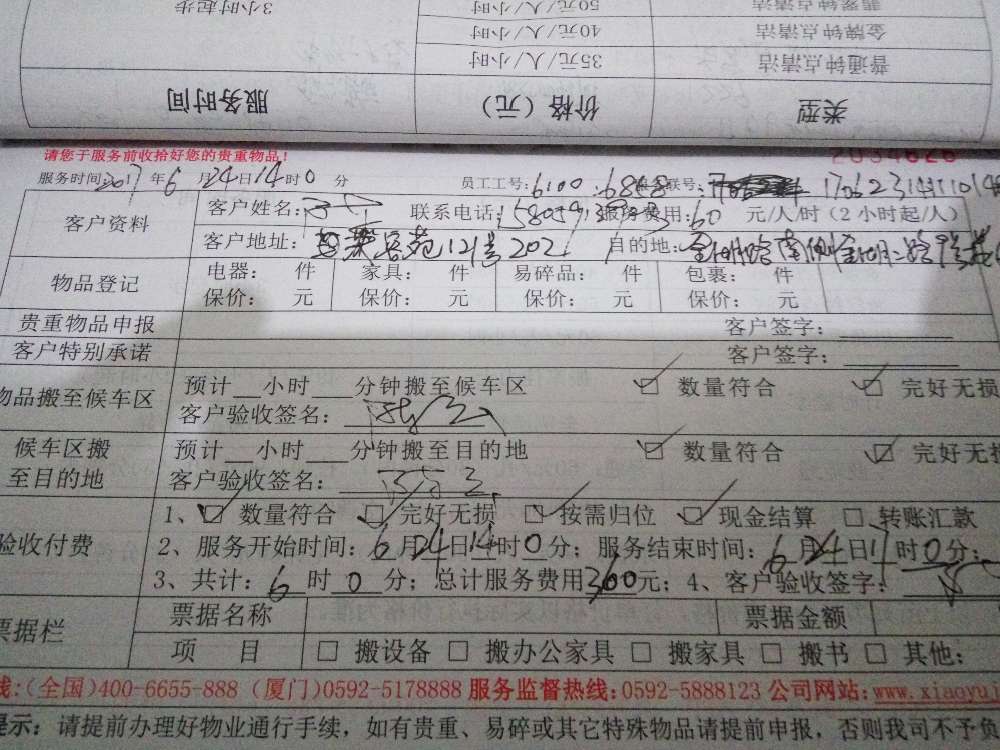 类型 价格（元） 服务时间
普通钟点清洁 35元/人/小时
金牌钟点清洁 40元/人/小时
翡翠钟点清洁 50元/人/小时 3小时起步
请您于服务前收拾好您的贵重物品！
服务时间:2017年6月24日14时0分 员工工号:6100
客户资料
客户姓名: 联系电话: 服务费用:60 元/人/时（2小时起/人）
客户地址: 苑12号202 目的地:
物品登记
电器： 件 家具： 件 易碎品： 件 包裹： 件
保价： 元 保价： 元 保价： 元 保价： 元
贵重物品申报 客户签字：
客户特别承诺 客户签字：
物品搬至候车区
预计__小时___分钟搬至候车区 数量符合 完好无损
客户验收签名：
候车区搬至目的地
预计__小时___分钟搬至目的地 数量符合 完好无损
客户验收签名：
验收付费
1、☑数量符合 ☑完好无损 ☑按需归位 ☑现金结算 □转账汇款
2、服务开始时间：6月24日14时0分；服务结束时间：6月24日17时0分；
3、共计：6时0分；总计服务费用360元；4、客户验收签字：
票据栏
票据名称 票据金额
项 目 □搬设备 □搬办公家具 □搬家具 □搬书 □其他：
线:(全国)400-6655-888 (厦门)0592-5178888 服务监督热线:0592-5888123 公司网站:www.xiaoyu
提示：请提前办理好物业通行手续，如有贵重、易碎或其它特殊物品请提前申报，否则我司不予负